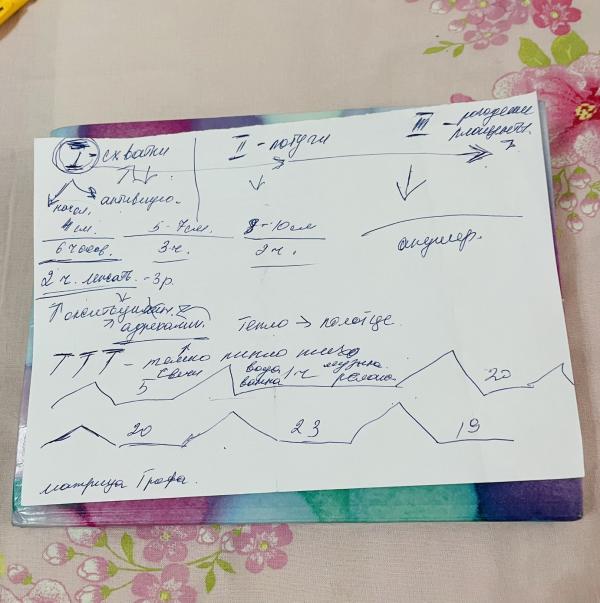 I - схватки II - потуги III - рождение плаценты.
начал. активную.
4 см. 5-7 см. 8-10 см
6 часов. 3 ч. 2 ч. акушер.
2 ч. лежать - 3 р.
↑ окситоцин.
адреналин. Тепло → полотце.
TTT - только тихо
5 свечи вода ванна / ч музыка релакс. 20
20 23 19
матрица Грофа.